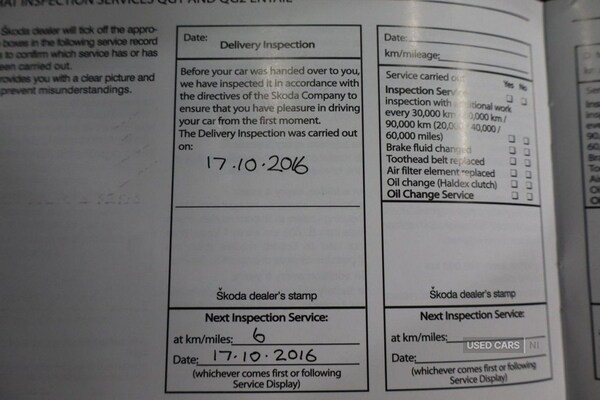 HAT INSPECTION SERVICES QG1 AND QG2 ENTAIL
Škoda dealer will tick off the appro-
boxes in the following service record
to confirm which service has or has
een carried out.
rovides you with a clear picture and
prevent misunderstandings.
Date:
Delivery Inspection
Before your car was handed over to you,
we have inspected it in accordance with
the directives of the Skoda Company to
ensure that you have pleasure in driving
your car from the first moment.
The Delivery Inspection was carried out
on:
17.10.2016
Škoda dealer's stamp
Next Inspection Service:
at km/miles: 6
Date: 17.10.2016
(whichever comes first or following
Service Display)
Date:
km/mileage:
Service carried out
Yes No
Inspection Service
inspection with additional work
every 30,000 km
90,000 km (20,000 / 40,000 /
60,000 miles)
Brake fluid changed
Toothead belt replaced
Air filter element replaced
Oil change (Haldex clutch)
Oil Change Service
Škoda dealer's stamp
Next Inspection Service:
at km/miles:
Date:
(whichever comes first or following
Service Display)
USED CARS NI